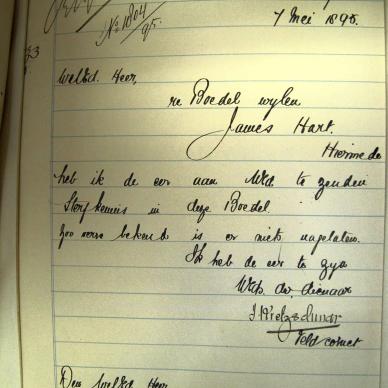 No 1804/95.
7 Mei 1895.
WelEd. Heer,
re Boedel wylen
James Hart.
Hiermede
heb ik de eer aan UEd. te zenden
Sterfkennis in deze Boedel.
Zoo verre bekend is er niets nagelaten.
Ik heb de eer te zyn
UEds. dw. dienaar
Veldcornet
Den WelEd. Heer